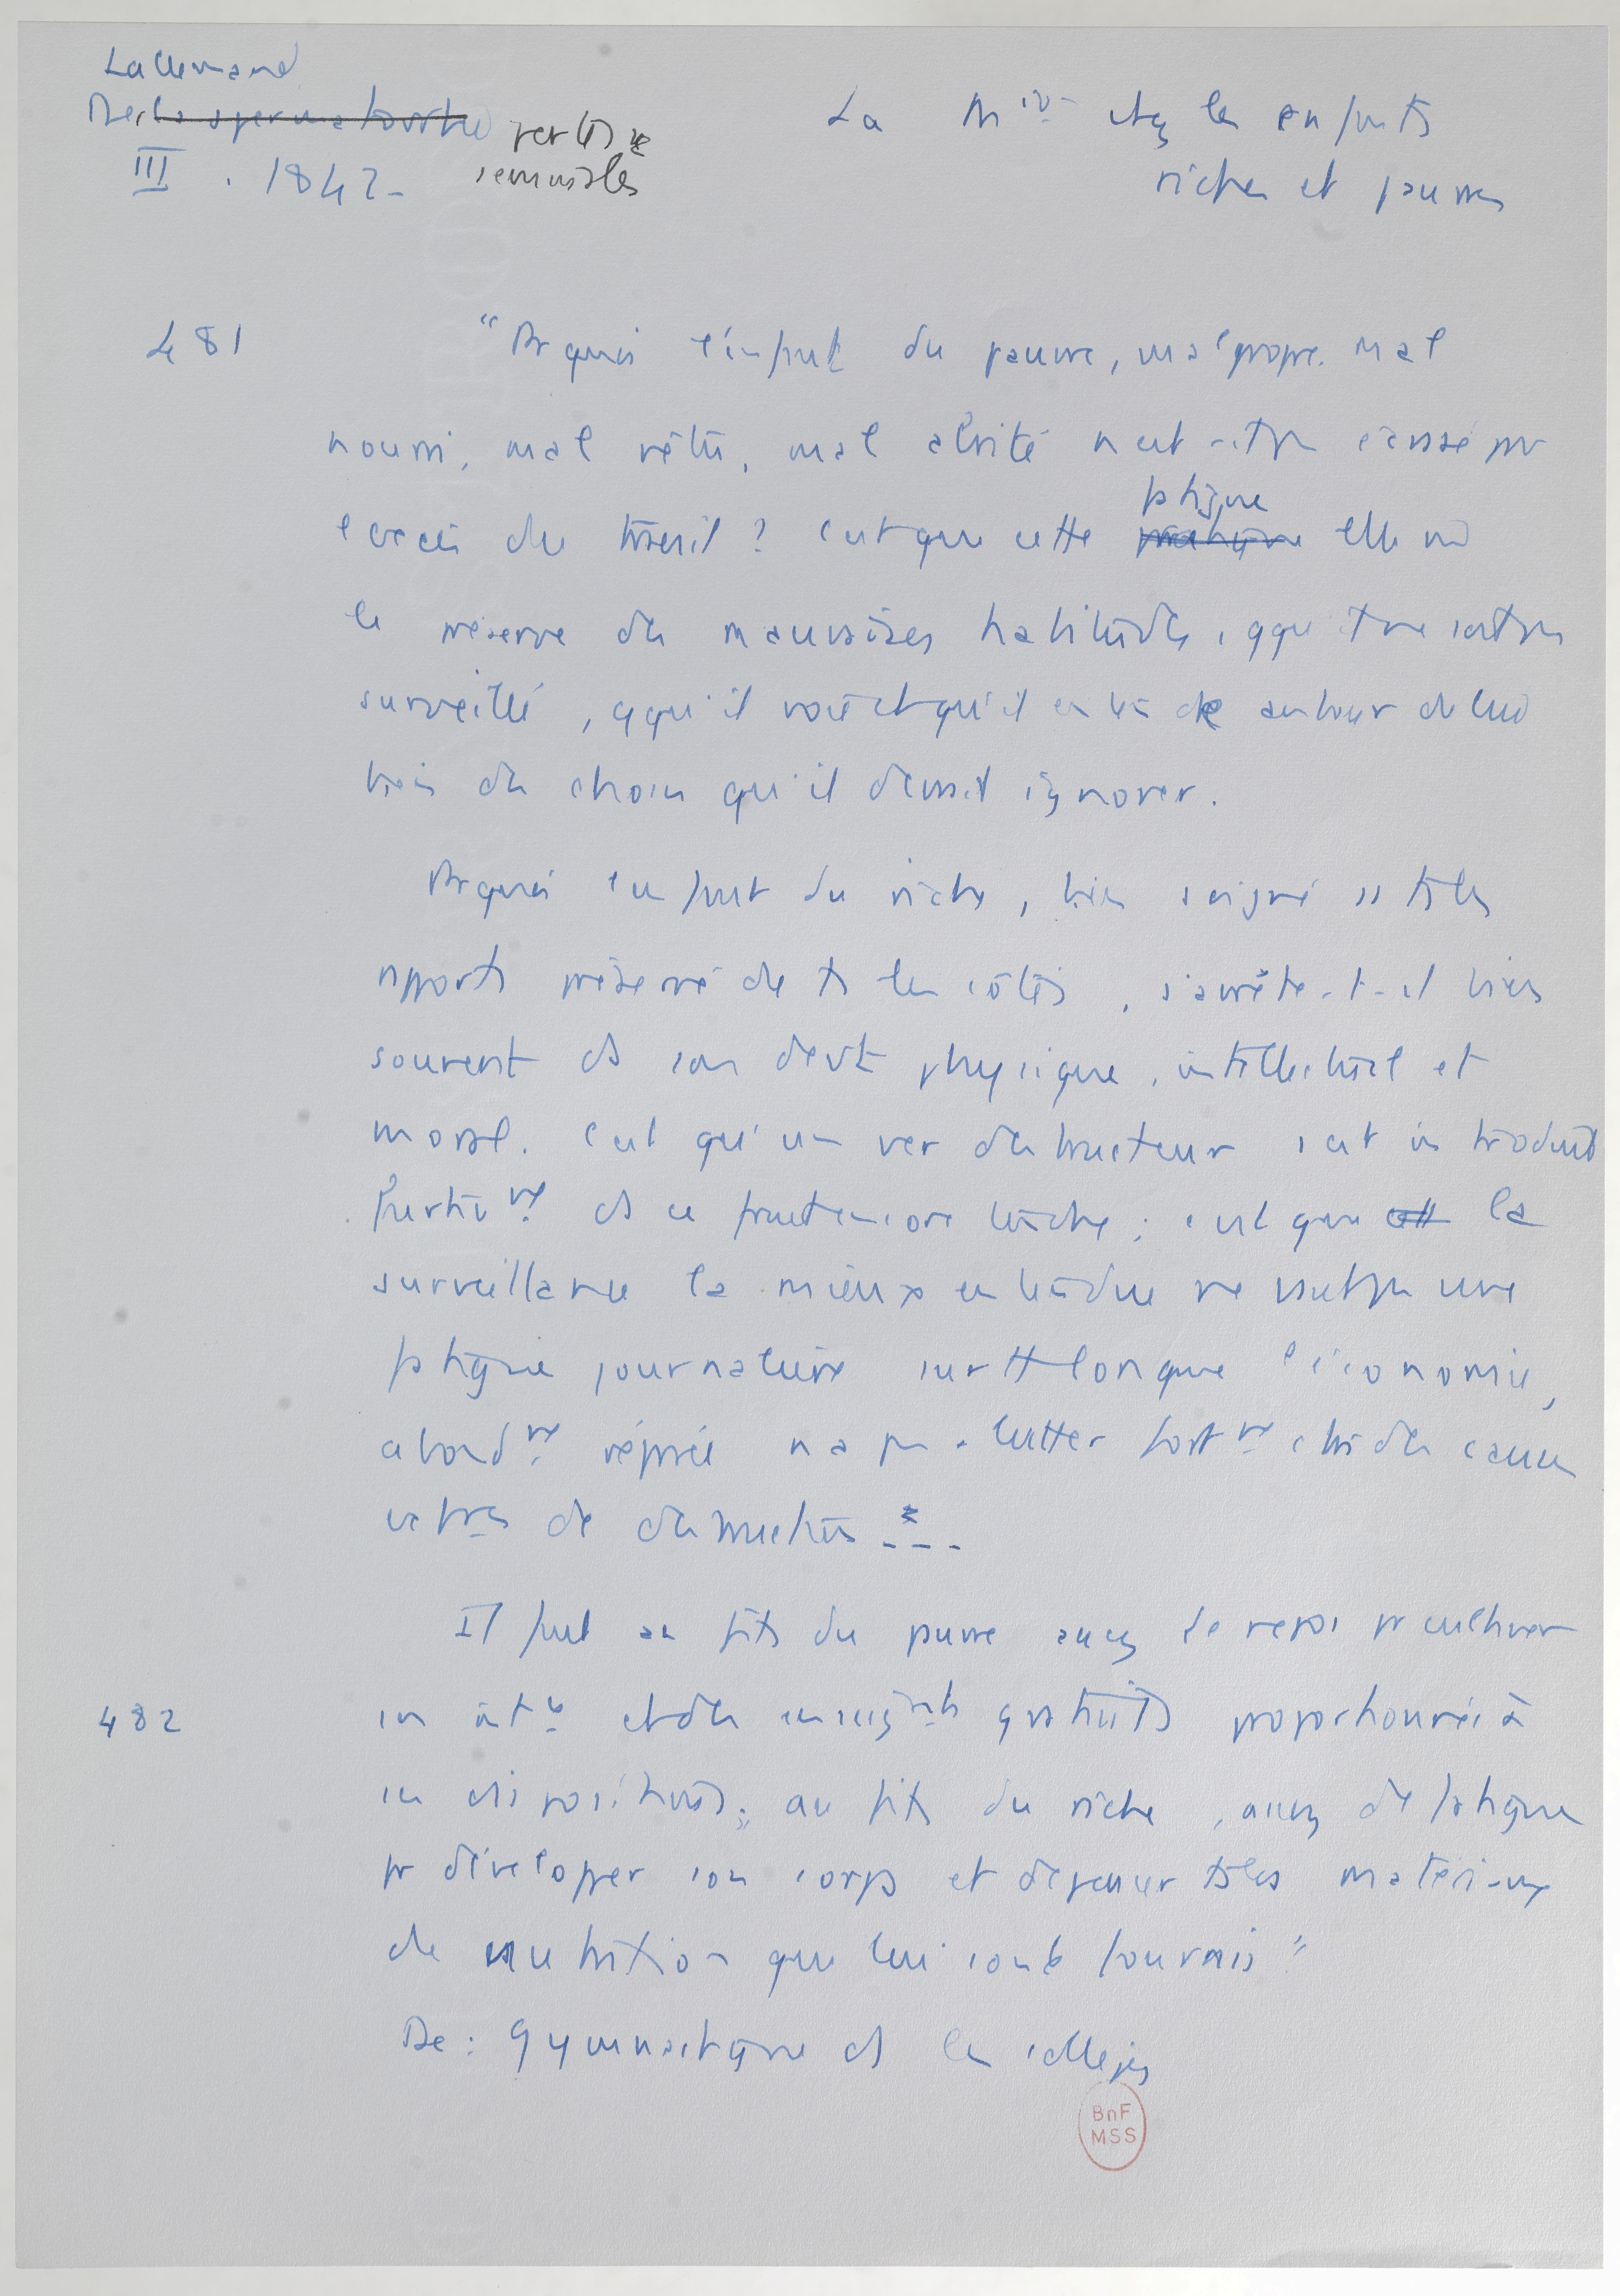 Lallemand
Des la spermatorrhée pertes
séminales
III. 1842-
La Mion chez les enfants
riches et pauvres
481
"Pr quoi l'enfant du pauvre, malpropre. mal
nourri, mal vêtu, mal abrité n'est-il pas écrasé par
l'excès du travail ? C'est que cette fatigue elle mê
le préserve des mauvaises habitudes, qqu'il ne soit pas
surveillé, qqu'il voie et qu'il entende autour de lui
bien des choses qu'il devrait ignorer.
Pr quoi l'enfant du riche, bien soigné ss ts les
rapports préservé de ts les côtés, s'arrête-t-il bien
souvent ds son devt physique, intellectuel et
moral. C'est qu'un ver destructeur s'est introduit
furtivt ds ce fruit encore tendre ; c'est que la
surveillance la mieux entendue ne vaut pas une
fatigue journalière surtt lorsque l'économie,
abondt réparée n'a pas à lutter fortt ctre des causes
extres de destruction ...
Il faut au fils du pauvre assez de repos pr cultiver
482
son intce et des enseignts gratuits proportionnés à
ses dispositions ; au fils du riche, assez de fatigue
pr développer son corps et dépenser ts les matériaux
de nutrition qui lui sont fournis"
De : gymnastique ds les collèges
BnF
MSS